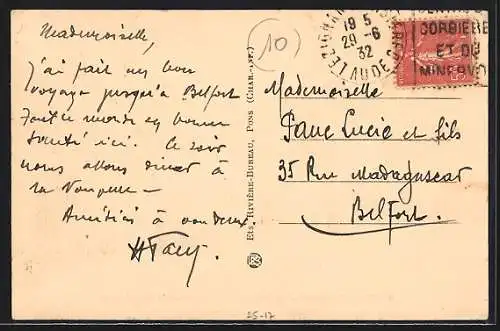 Mademoiselle,
J'ai fait un bon
voyage jusqu'à Belfort
Tout le monde en bonne
santé ici. Ce soir
nous allons diner à
la
Amitiés à vous deux
10
19 5
29-6
32
LEZIGNAN
AUDE
CORBIERE
ET DU
MINERVO
Mademoiselle
Lucie et fils
35 Rue Madagascar
Belfort.
Ets. RIVIÈRE-BUREAU, PONS (CHAR.-INF.)
25-17